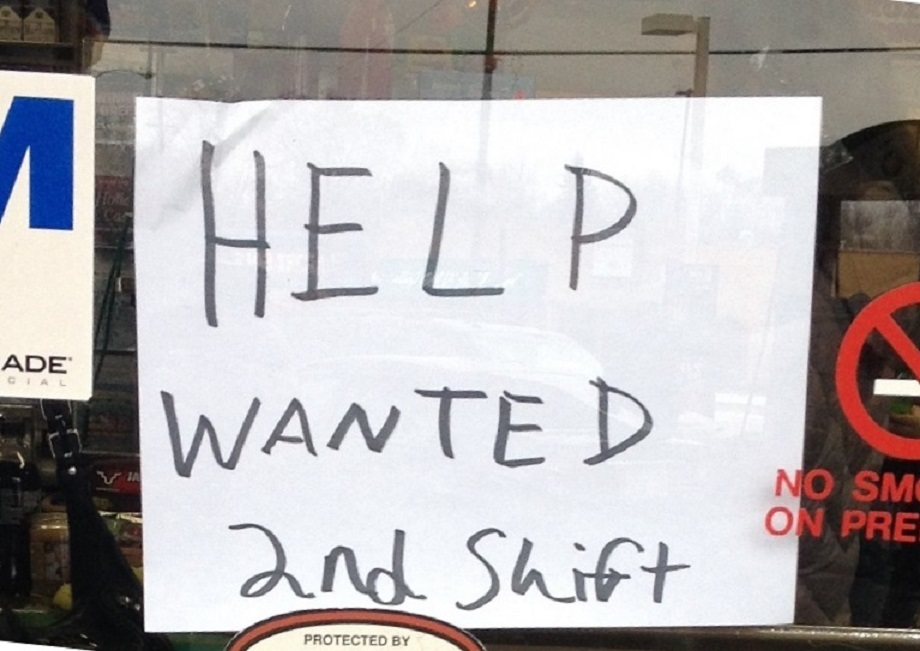 HELP
WANTED
2nd Shift
M
ADE
CIAL
NO SMO
ON PRE
PROTECTED BY